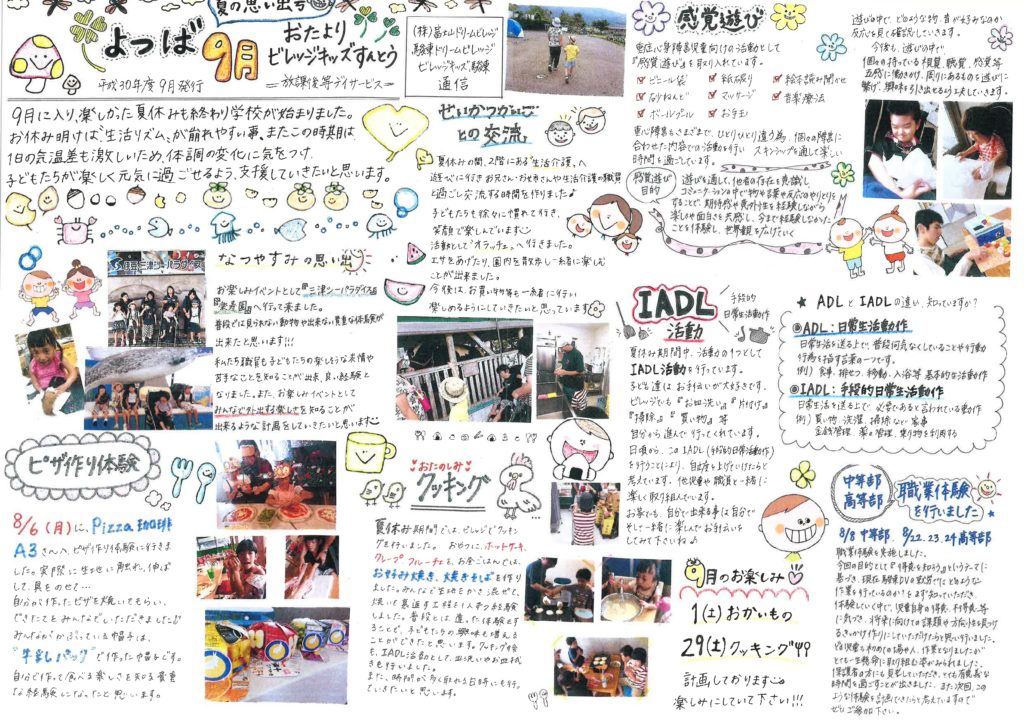 夏の思い出号
よっば 9月
おたより
ビレッジキッズすんとう
平成30年度9月発行
放課後等デイサービス
(株)富士山ドリームビレッジ
駿東ドリームビレッジ
ビレッジキッズ駿東
通信
9月に入り、楽しかった夏休みも終わり学校が始まりました。
お休み明けは“生活リズム”が崩れやすい事、またこの時期は
1日の気温差も激しいため、体調の変化に気をつけ、
子どもたちが楽しく元気に過ごせるよう、支援していきたいと思います。
なつやすみの思い出
お楽しみイベントとして『三津シーパラダイス』
へ行って来ました。
普段では見られない動物や出来ない貴重な体験が
出来たと思います!!!
私たち職員も子どもたちの楽しそうな表情や
苦手なことを知ることが出来、良い経験と
なりました。また、お楽しみイベントとして
みんなで外出する楽しさを知ることが
出来るような計画をしていきたいと思います
せいかつかいご
との交流
夏休みの間、2階にある“生活介護”へ
遊びに行きお兄さん・お姉さんや生活介護の職員
と過ごし交流する時間を作りました♪
子どもたちも徐々に慣れて行き、
笑顔で楽しんでいます
活動として“オラッチェ”へ行きました。
エサをあげたり、園内を散歩し一緒に楽しむ
ことが出来ました。
今後は、お買い物等も一緒に行い
楽しめるようにしていきたいと思っています
感覚遊び
重症心身障害児童向けの活動として
『感覚遊び』を取り入れています。
ビニール袋
紙破り
絵本読み聞かせ
砂ねんど
マッサージ
音楽療法
ボールプール
お手玉
重心障害もさまざまで、ひとりひとり違う為、個々の障害に
合わせた内容での活動を行い、スキンシップを通して楽しい
時間を過ごしています。
感覚遊び
目的
遊びを通して、他者の存在を意識し、
コミュニケーションの中で物や言葉や反応のやりとりを
することで、期待感や意外性を経験しながら
楽しさや面白さを共感し、今まで経験しなかった
ことも体験し、世界観を広げていく
遊びの中で、どのような物、音が好みなのか
反応を良く確認していきます。
今後も、遊びの中で
個々の持っている視覚、聴覚、触覚等
五感に働きかけ、周りにあるものを遊びに
繋げ、興味を引き出せるよう工夫していきます。
IADL
活動
手段的
日常生活動作
夏休み期間中、活動の1つとして
IADL活動を行っています。
子ども達はお手伝いが大好きです。
ビレッジでも『お皿洗い』『片付け』
『掃除』『買い物』等
自分から進んで行ってくれています。
日頃から、このIADL(手段的日常生活動作)
を行うことにより、自立度を上げていけたらと
考えています。他児童や職員と一緒に
楽しく取り組んでいます。
お家でも、自分で出来る事は自分で
そして一緒に楽しんでお手伝いを
してみて下さいね♪
★ ADLとIADLの違い、知っていますか?
◎ADL:日常生活動作
日常生活を送る上で、普段何気なくしていることや行動
行為を指す言葉の一つです。
例) 食事、排せつ、移動、入浴等 基本的な活動作
◎IADL:手段的日常生活動作
日常生活を送る上で 必要であると言われている動作
例) 買い物、洗濯、掃除など家事
金銭管理、薬の管理、乗り物を利用する
ピザ作り体験
8/6(月)に、Pizza 珈琲
A3さんへピザ作り体験に行きま
した。実際に生地に触れ、伸ば
して、具をのせて…
自分で作ったピザを焼いてもらい、
できたてをみんなでいただきました♪
みんながかぶっている帽子は、
“牛乳パック”で作った帽子です。
自分で作って食べる楽しさを知る貴重
な体験になったと思います。
おたのしみ
クッキング
夏休み期間では、ビレッジでクッキン
グを行いました。おやつに、ホットケーキ、
クレープ、フルーチェを、お昼ごはんでは、
お好み焼き、焼きそばを作り
ました。みんなで生地をかき混ぜて、
焼いて裏返す工程を1人ずつ体験
しました。普段とは、違った体験をす
ることで、子どもたちの興味も増える
ことができたと思います。クッキングの後
も、IADL活動として、皿洗いやお皿拭
きも行いました。
また、時間が多く取れる日時にも行っ
ていきたいと思います。
9月のお楽しみ♡
1(土)おかいもの
29(土)クッキング
計画しております
楽しみにしていて下さい!!!
中等部
高等部
職業体験
を行いました
8/8 中等部、8/22.23.24 高等部
職業体験を実施しました。